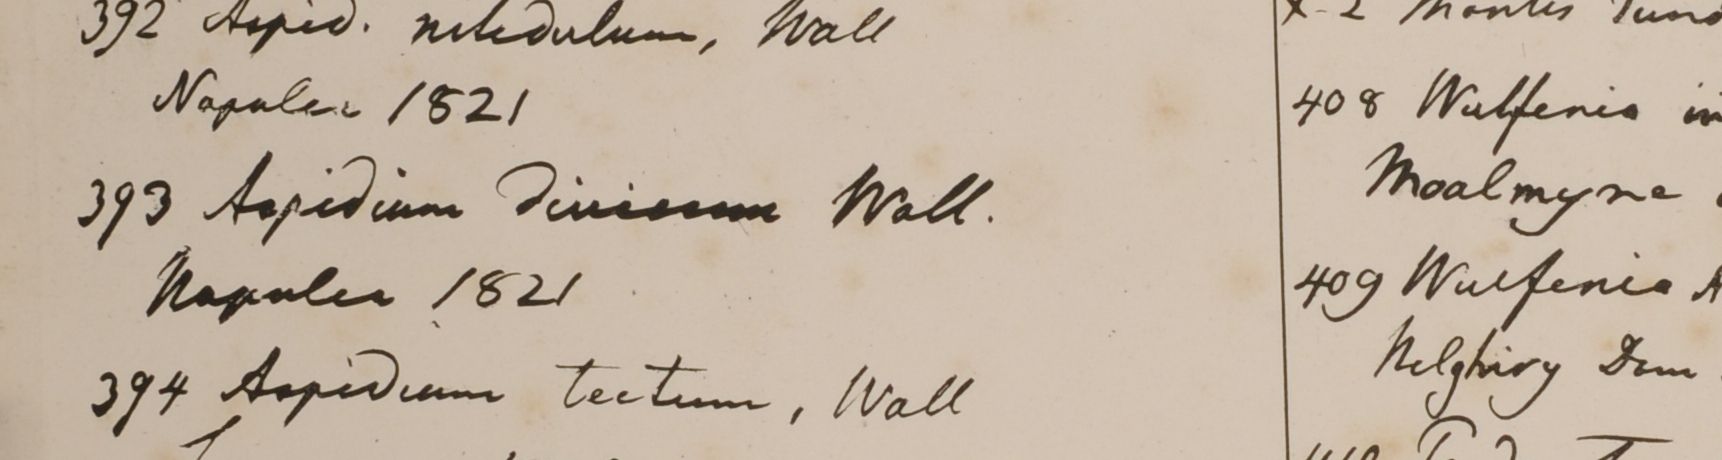 392 Aspid. nitidulum, Wall
Napalia 1821
393 Aspidium divisum Wall.
Napalia 1821
394 Aspidium tectum, Wall
x-2 Montis
408 Wulfenia
Moalmyne
409 Wulfenia A
Nelghiry Dom